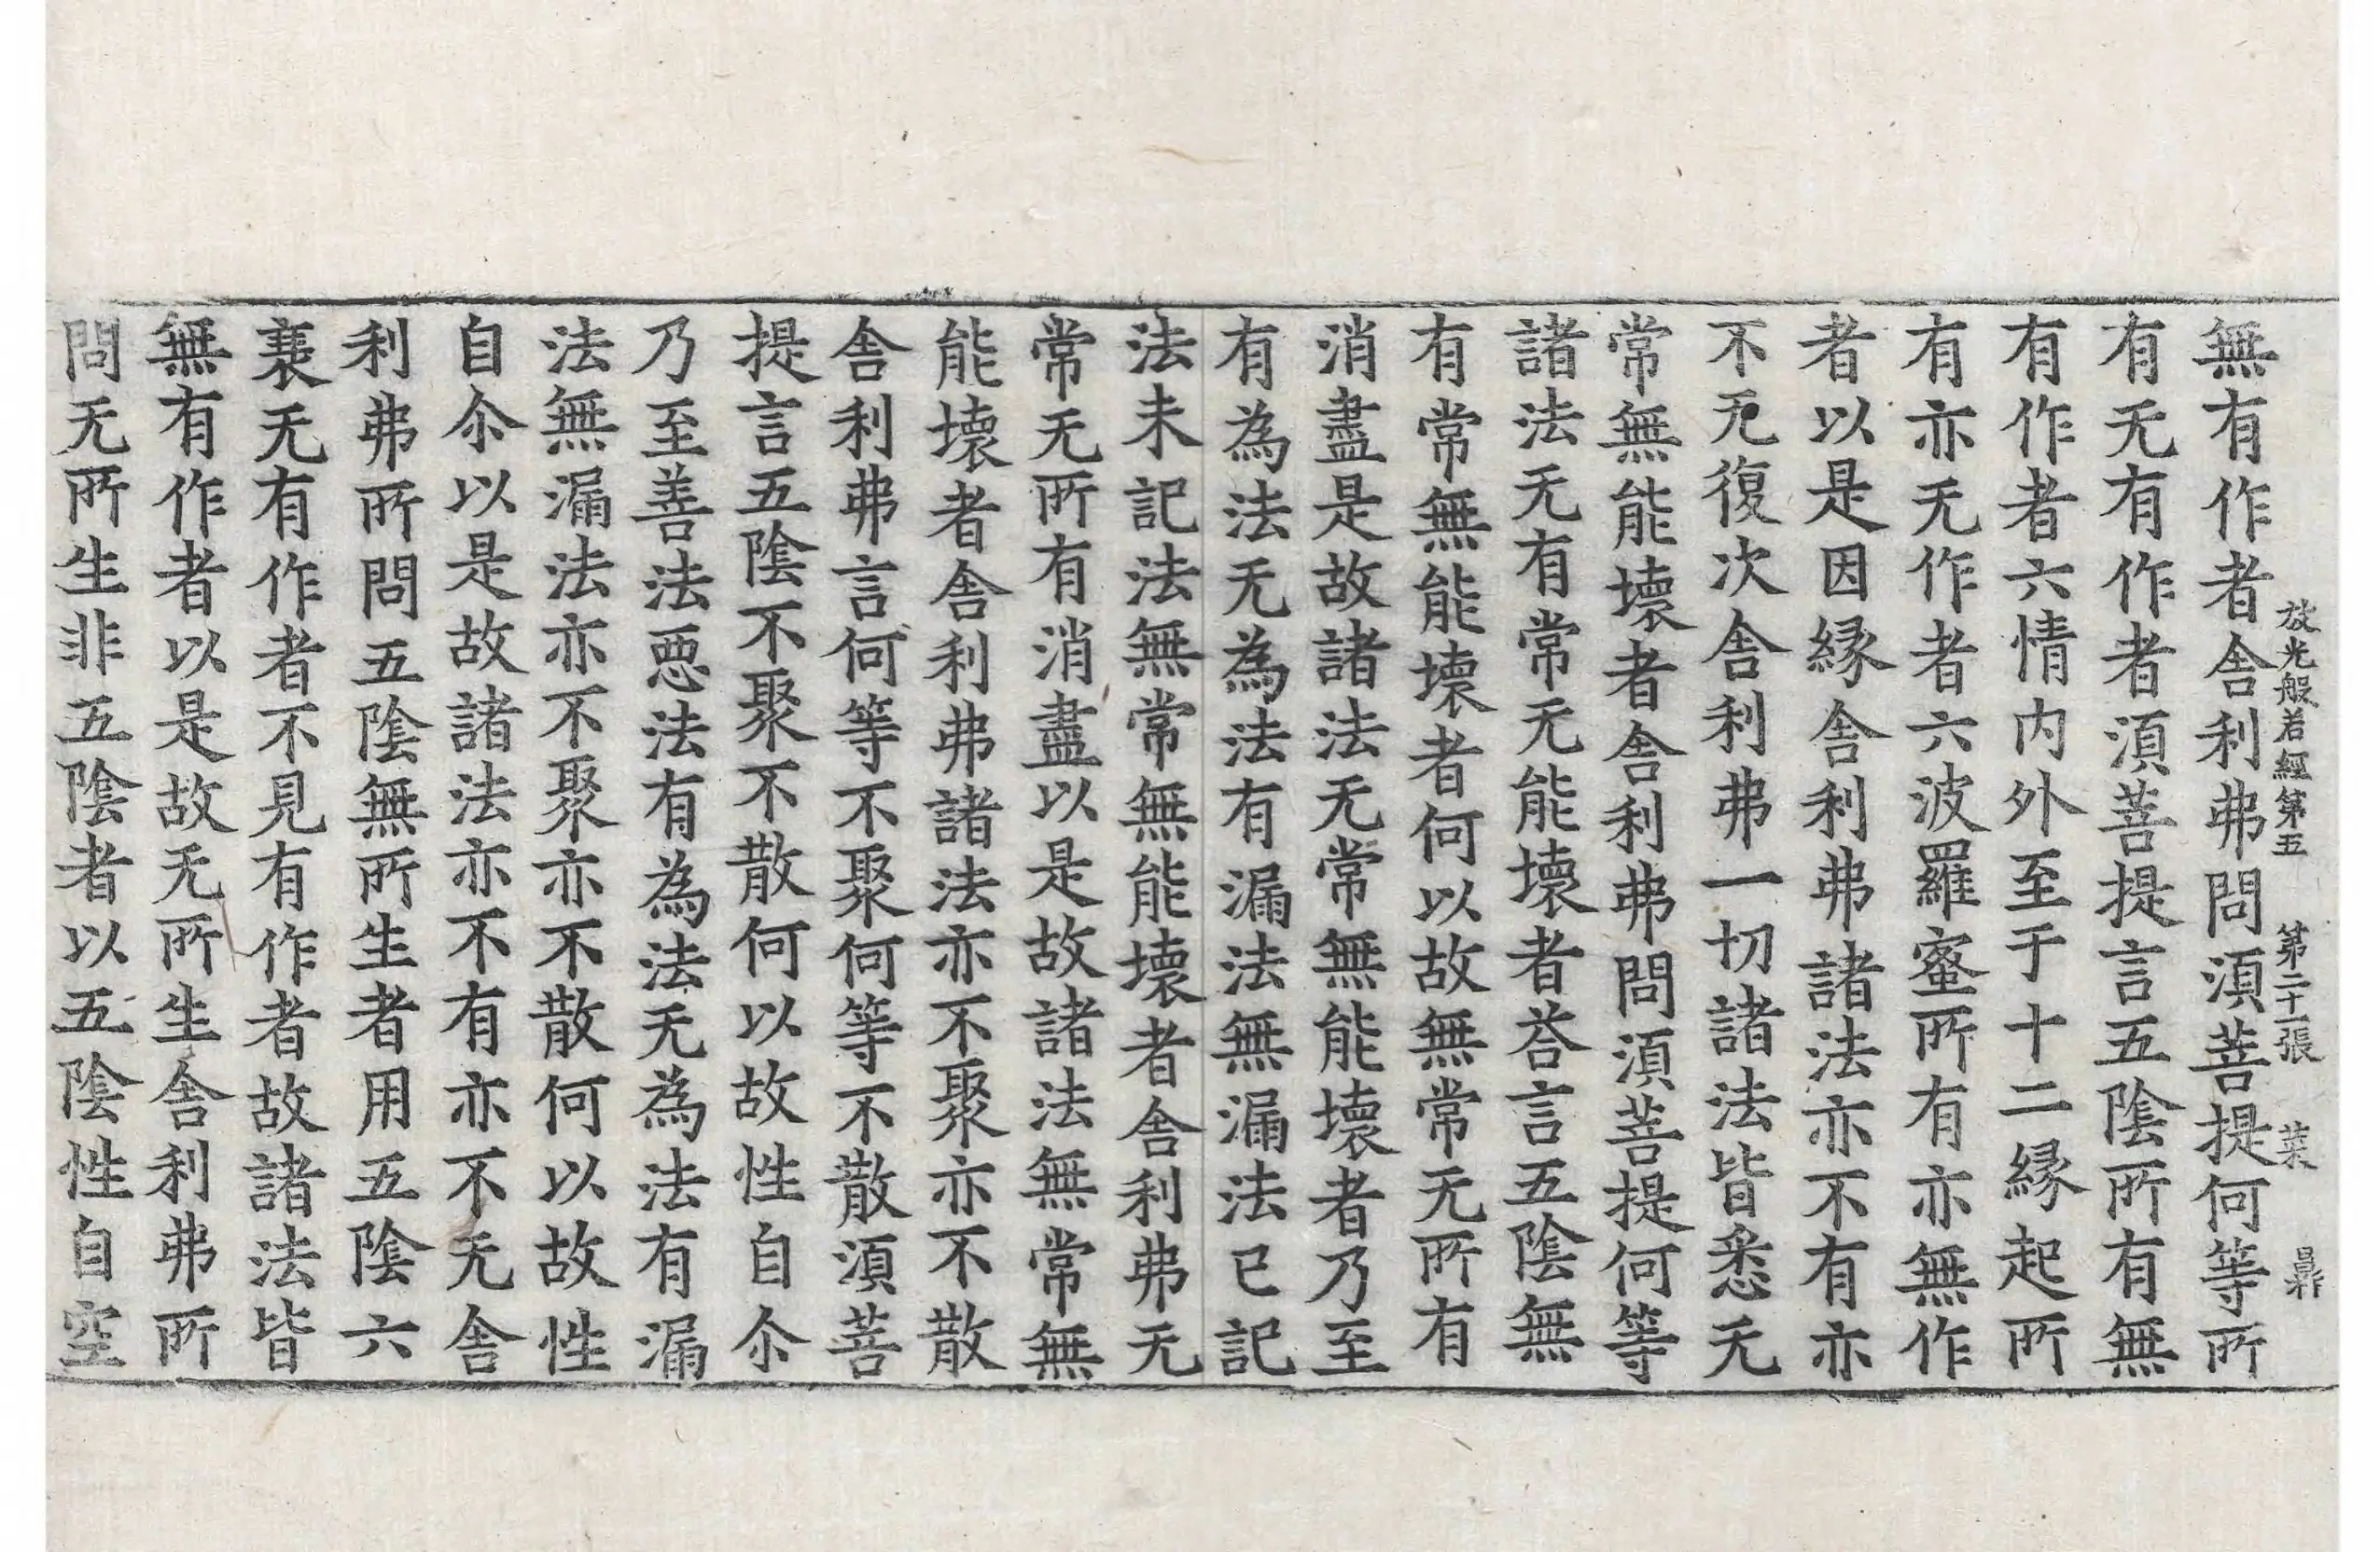 放光般若經第五　第二十一張　菜　鼎
無有作者舎利弗問湏菩提何等所
有无有作者湏菩提言五隂所有無
有作者六情内外至于十二縁起所
有亦无作者六波羅蜜所有亦無作
者以是因縁舎利弗諸法亦不有亦
不无復次舎利弗一切諸法皆悉无
常無能壞者舎利弗問湏菩提何等
諸法无有常无能壞者荅言五隂無
有常無能壞者何以故無常无所有
消盡是故諸法无常無能壞者乃至
有為法无為法有漏法無漏法已記
法未記法無常無能壞者舎利弗无
常无所有消盡以是故諸法無常無
能壞者舎利弗諸法亦不聚亦不散
舎利弗言何等不聚何等不散湏菩
提言五隂不聚不散何以故性自尒
乃至善法惡法有為法无為法有漏
法無漏法亦不聚亦不散何以故性
自尒以是故諸法亦不有亦不无舎
利弗所問五隂無所生者用五隂六
裹无有作者不見有作者故諸法皆
無有作者以是故无所生舎利弗所
問无所生非五隂者以五隂性自空